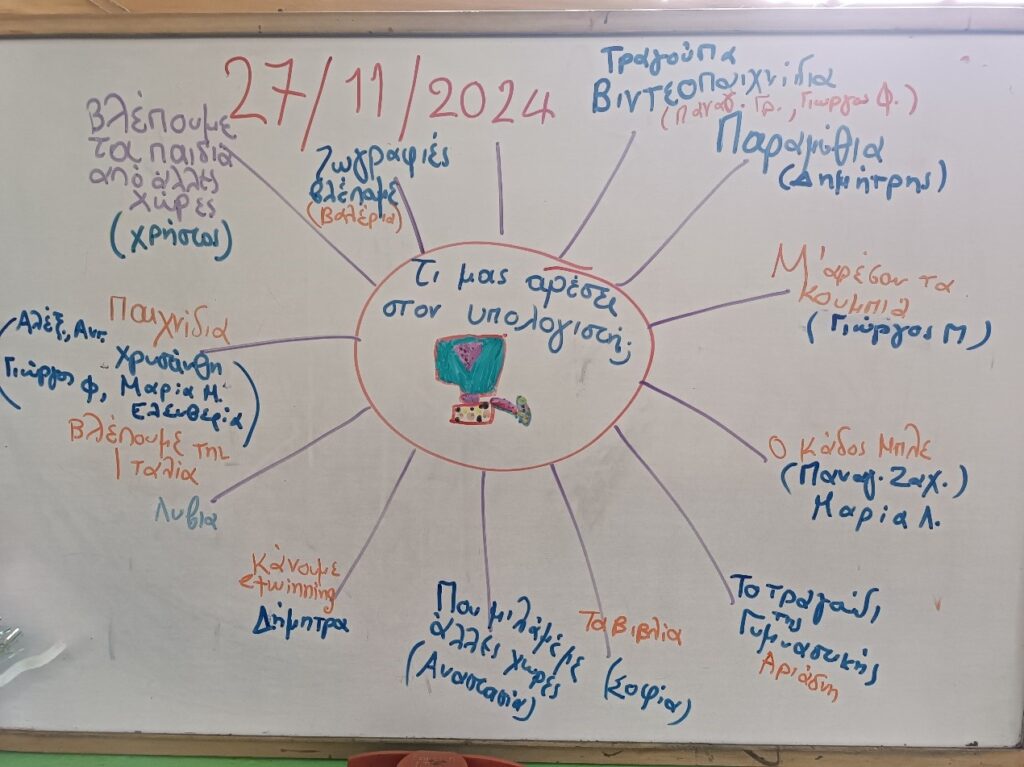 27/11/2024
Τραγούδια
Βιντεοπαιχνίδια
(Παναγ. Γρ., Γιώργος Φ.)
Παραμύθια
(Δημήτρης)
Βλέπουμε
τα παιδιά
από άλλες
χώρες
(Χρήστος)
Ζωγραφιές
βλέπαμε
(Βαλέρια)
Τι μας αρέσει
στον υπολογιστή;
Μ'αρέσουν τα
κουμπιά
(Γιώργος Μ)
Παιχνίδια
(Αλέξ., Αντ.
Χρυσάνθη
Γιώργος Φ, Μαρία Μ.
Ελευθερία)
Βλέπουμε την
Ιταλία
Λυβια
Ο Κάδος Μπλε
(Παναγ. Ζαχ.)
Μαρία Λ.
Κάνουμε
etwinning
Δήμητρα
Που μιλάμε με
άλλες χώρες
(Αναστασία)
Τα βιβλία
(Σοφία)
Το τραγούδι
της
Γυμναστικής
Αριάδνη